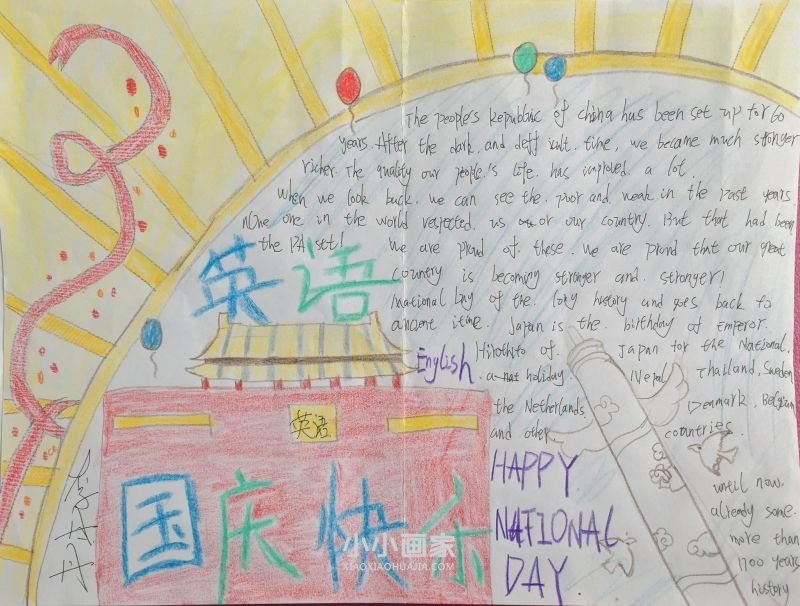 The people's Republic of china has been set up for 60
years. After the dark. and deff icult. time, we became much stronger
richer. The quality our people's life. has improved. a lot.
when we look back. we can see the. poor and. weak in the past years.
none one in the world respected. us or our country. But that had been
the PA set!
we are proud of. these. we are proud that our great
country is becoming stronger and. stronger!
英语
national Day of the. long history and goes back to
ancient itime. Japan is the. birthday of Emperor.
English
Hirohito of. Japan for the National.
a holiday. Nepal Thailand, Sweden
the Netherlands Denmark, Belgium
and other. countries.
英语
国庆快乐
HAPPY
NATIONAL
DAY.
until now.
already some.
more than
1700 years
history
小小画家
XIAOXIAOHUAJIA.COM